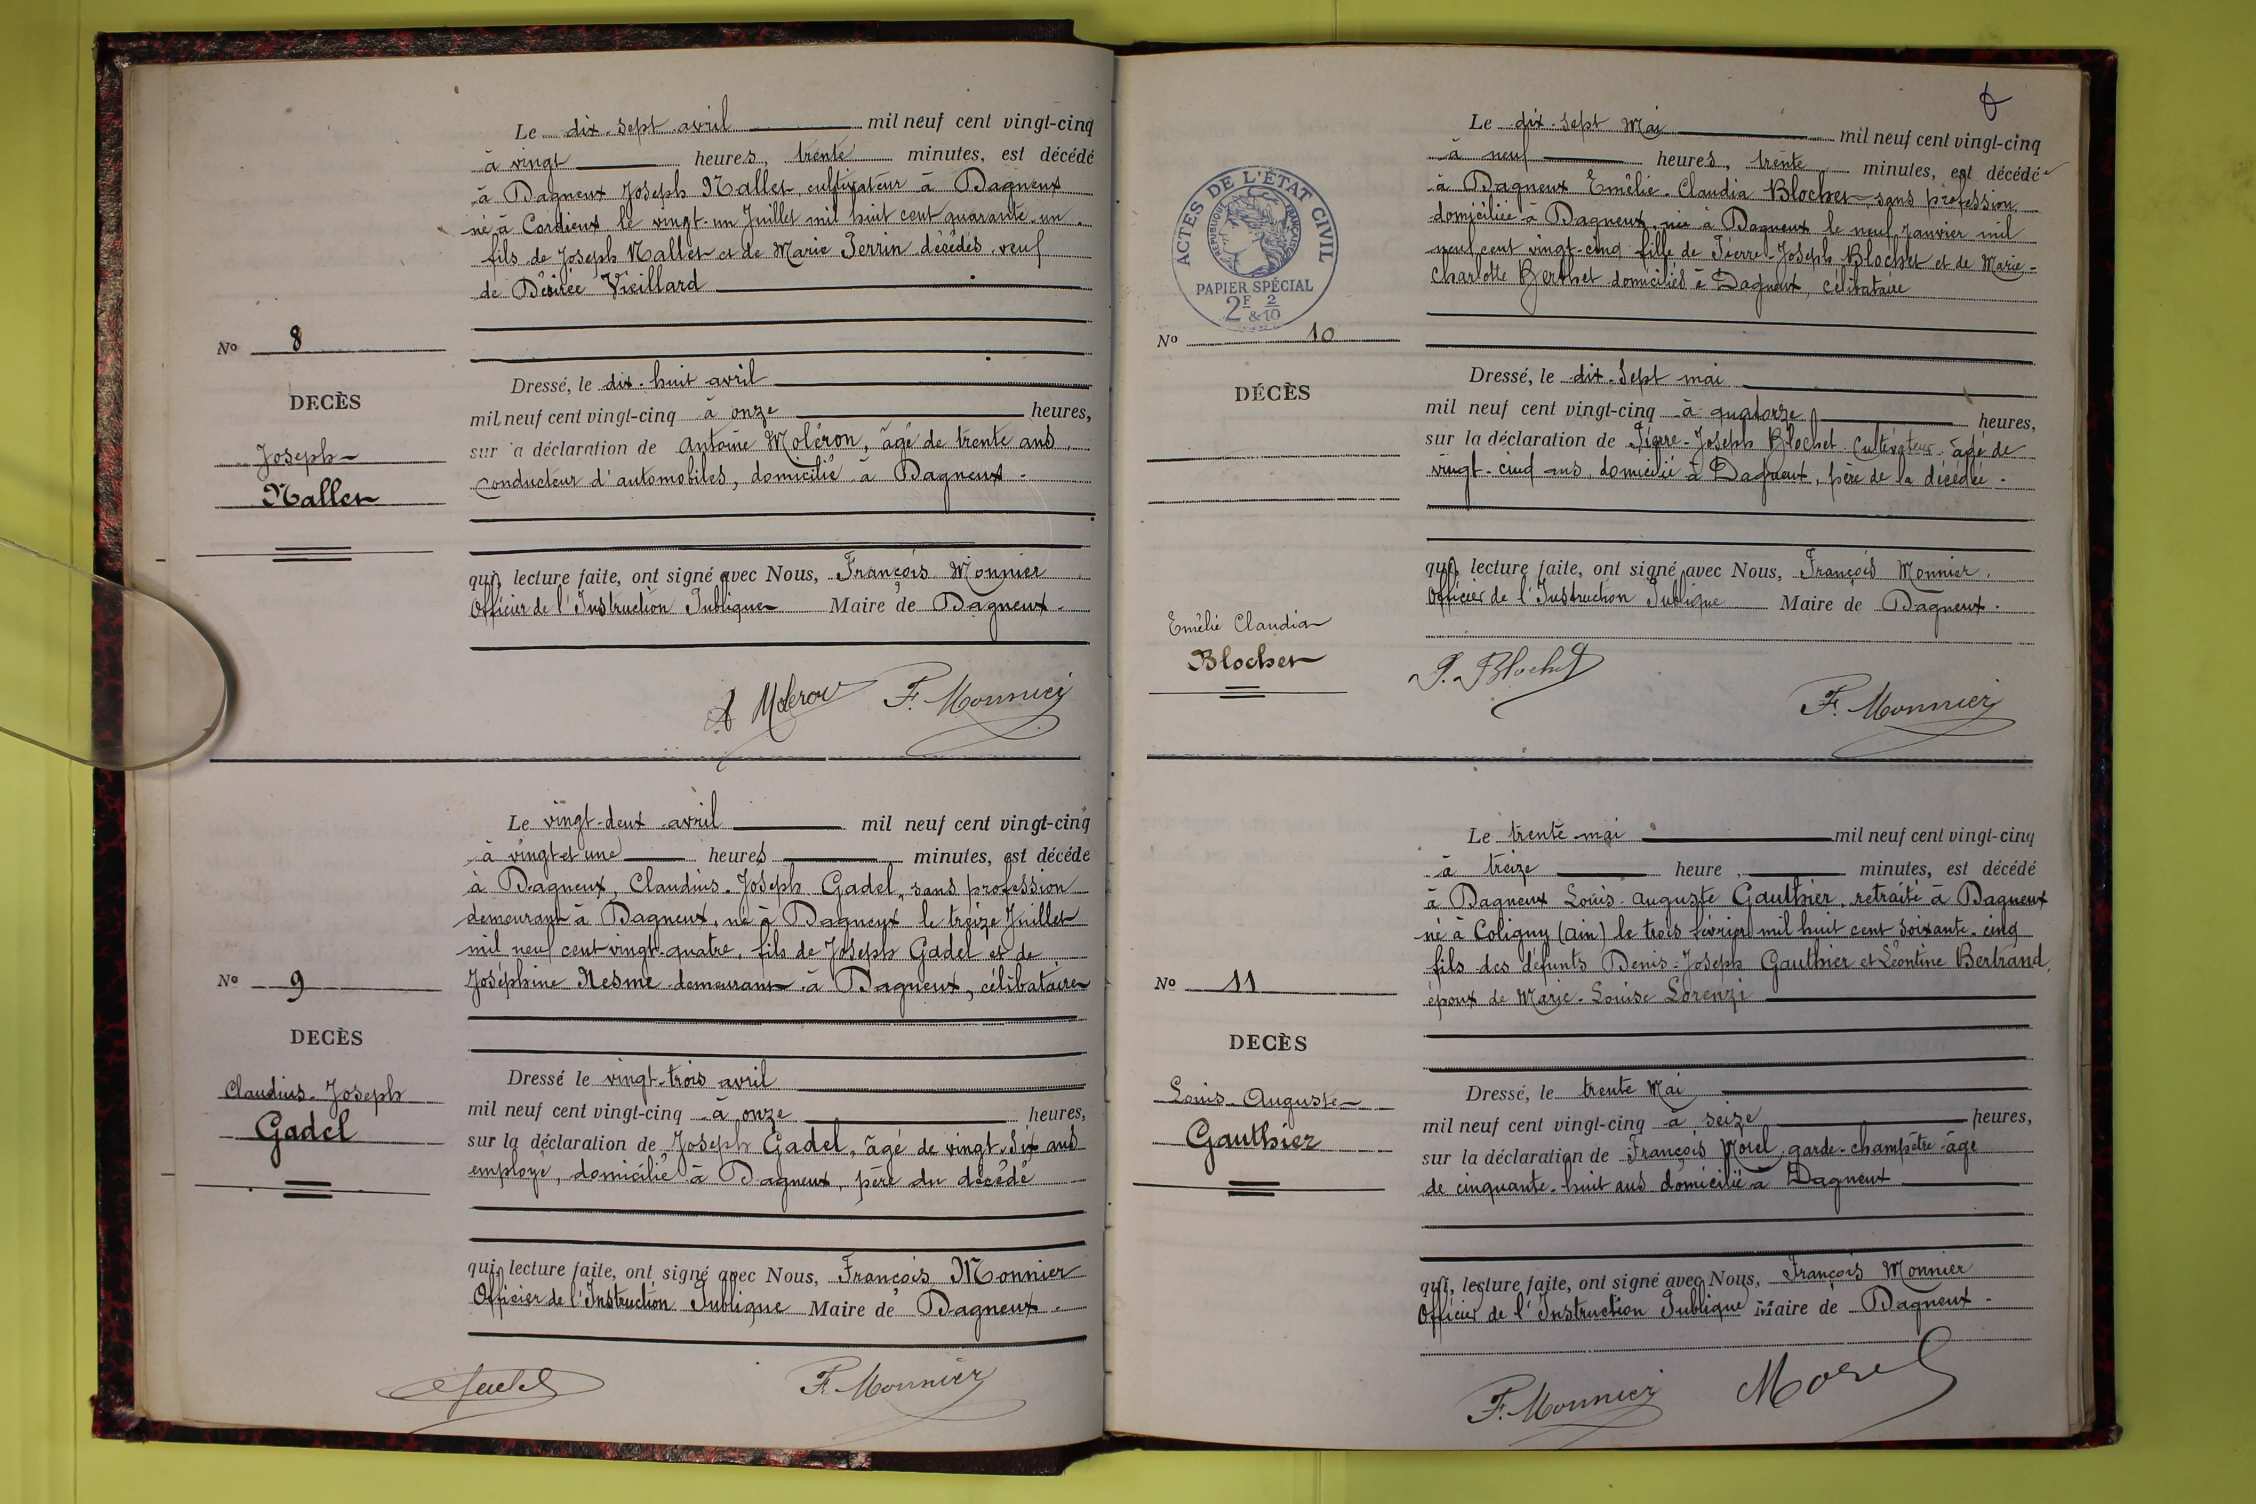 Le dix-sept avril mil neuf cent vingt-cinq
à vingt heures, trente minutes, est décédé
à Dagneux Joseph Nallet cultivateur à Dagneux
né à Cordieux le vingt-un Juillet mil huit cent quarante-un
fils de Joseph Nallet et de Marie Perrin décédés, veuf
de Désirée Vieillard
No 8
DECÈS
Joseph
Nallet
Dressé, le dix-huit avril
mil neuf cent vingt-cinq à onze heures,
sur a déclaration de Antoine Moléron, âgé de trente ans,
conducteur d'automobiles, domicilié à Dagneux.
qui, lecture faite, ont signé avec Nous, François Monnier
Officier de l'Instruction Publique Maire de Dagneux.
A Moleron F. Monnier
Le vingt-deux avril mil neuf cent vingt-cinq
à vingt et une heures minutes, est décédé
à Dagneux, Claudius-Joseph Gadel, sans profession
demeurant à Dagneux, né à Dagneux le treize Juillet
mil neuf cent vingt-quatre, fils de Joseph Gadel et de
Joséphine Nesme demeurant à Dagneux, célibataire
No 9
DECÈS
Claudius-Joseph
Gadel
Dressé le vingt-trois avril
mil neuf cent vingt-cinq à onze heures,
sur la déclaration de Joseph Gadel, âgé de vingt-six ans
employé, domicilié à Dagneux, père du décédé
qui, lecture faite, ont signé avec Nous, François Monnier
Officier de l'Instruction Publique Maire de Dagneux.
Gadel F. Monnier
ACTES DE L'ÉTAT CIVIL
RÉPUBLIQUE FRANÇAISE
PAPIER SPÉCIAL
2F & 2/10
Le dix-sept Mai mil neuf cent vingt-cinq
à neuf heures, trente minutes, est décédé
à Dagneux Emélie Claudia Blochet, sans profession
domiciliée à Dagneux, née à Dagneux le neuf janvier mil
neuf cent vingt-cinq fille de Pierre-Joseph Blochet et de Marie-
Charlotte Berthet domiciliés à Dagneux, célibataire
No 10
DÉCÈS
Emélie Claudia
Blochet
Dressé, le dix-sept mai
mil neuf cent vingt-cinq à quatorze heures,
sur la déclaration de Pierre-Joseph Blochet cultivateur âgé de
vingt-cinq ans, domicilié à Dagneux, père de la décédée.
qui, lecture faite, ont signé avec Nous, François Monnier.
Officier de l'Instruction Publique Maire de Dagneux.
P. Blochet
F. Monnier
Le trente mai mil neuf cent vingt-cinq
à treize heure, minutes, est décédé
à Dagneux Louis-Auguste Gauthier, retraité à Dagneux
né à Coligny (Ain) le trois février mil huit cent soixante-cinq
fils des défunts Denis-Joseph Gauthier et Léontine Bertrand,
époux de Marie-Louise Lorenzi
No 11
DECÈS
Louis-Auguste
Gauthier
Dressé, le trente Mai
mil neuf cent vingt-cinq à seize heures,
sur la déclaration de François Morel, garde-champêtre âgé
de cinquante-huit ans domicilié à Dagneux
qui, lecture faite, ont signé avec Nous, François Monnier
Officier de l'Instruction Publique Maire de Dagneux.
F. Monnier Morel